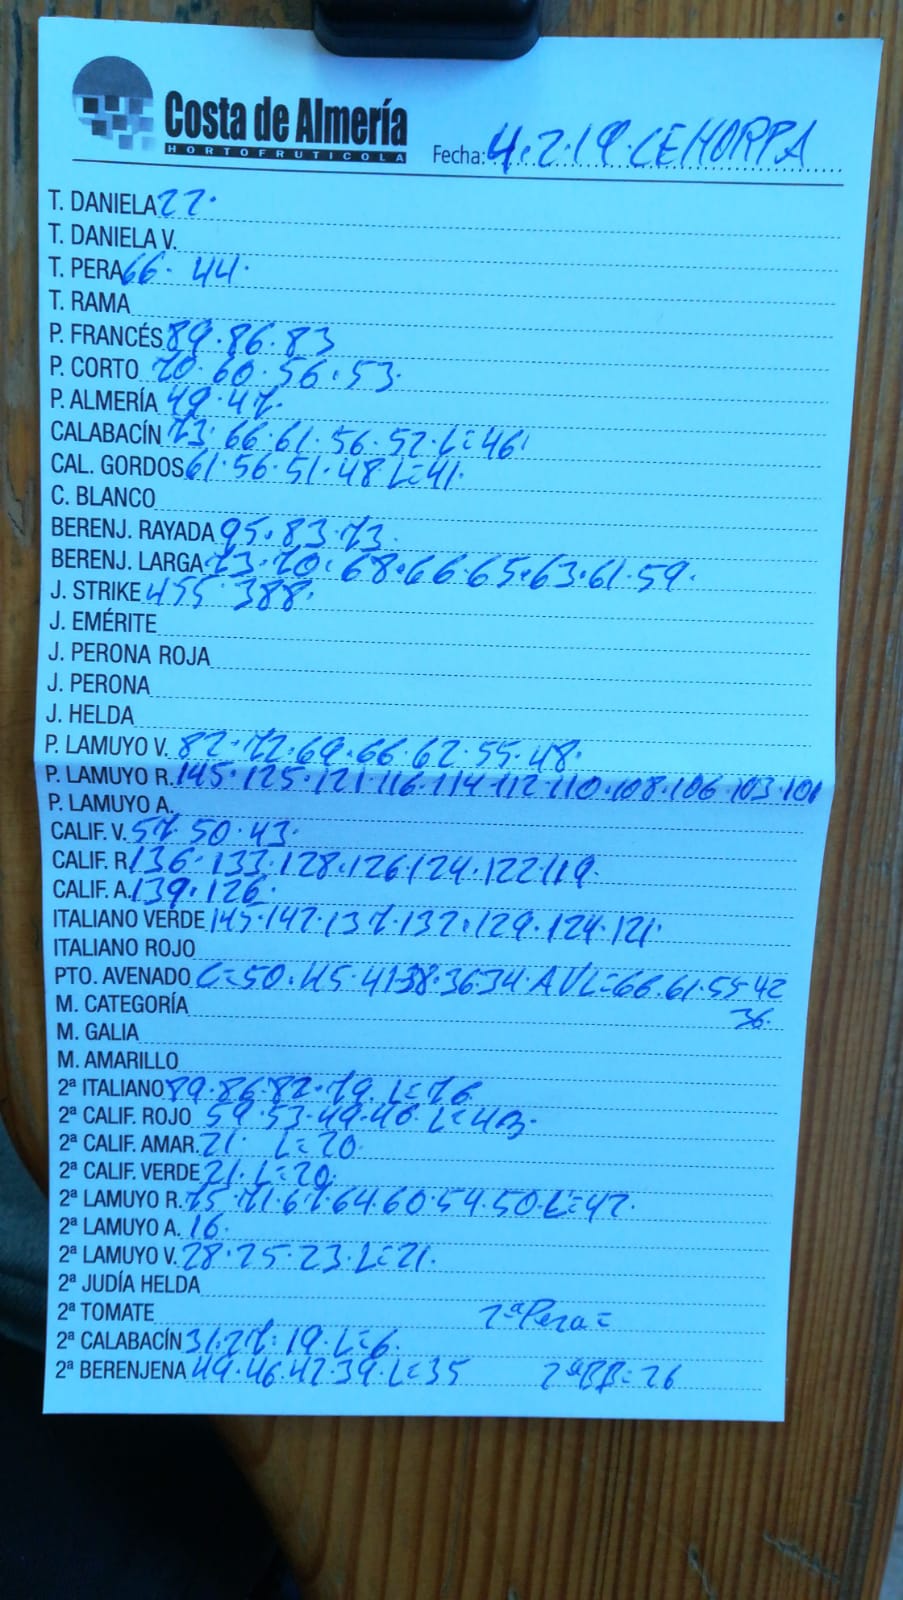 Costa de Almería
HORTOFRUTICOLA
Fecha: 4.2.19. CEHORPA
T. DANIELA 22.
T. DANIELA V.
T. PERA 66. 44.
T. RAMA
P. FRANCÉS 89.86.83
P. CORTO 70.60.56.53.
P. ALMERÍA 49.47.
CALABACÍN 73.66.61.56.52.L=46.
CAL. GORDOS 61.56.51.48 L=41.
C. BLANCO
BERENJ. RAYADA 95.83.73.
BERENJ. LARGA 73.70.68.66.65.63.61.59.
J. STRIKE 455 388.
J. EMÉRITE
J. PERONA ROJA
J. PERONA
J. HELDA
P. LAMUYO V. 82.72.69.66.62.55.48.
P. LAMUYO R. 145.125.121.116.114.112.110.108.106.103.101
P. LAMUYO A.
CALIF. V. 57.50.43.
CALIF. R. 136.133.128.126.124.122.119.
CALIF. A. 139.126.
ITALIANO VERDE 145.142.137.132.129.124.121.
ITALIANO ROJO
PTO. AVENADO C=50.45.41.38.36.34.AVL=66.61.55.42
36.
M. CATEGORÍA
M. GALIA
M. AMARILLO
2ª ITALIANO 89.86.82.79.L=76
2ª CALIF. ROJO 59.53.49.46.L=43.
2ª CALIF. AMAR. 21. L=20.
2ª CALIF. VERDE 21.L=20.
2ª LAMUYO R. 75.71.67.64.60.54.50.L=42.
2ª LAMUYO A. 16.
2ª LAMUYO V. 28.25.23.L=21.
2ª JUDÍA HELDA
2ª TOMATE 2ªPera=
2ª CALABACÍN 31.27.19.L=6.
2ª BERENJENA 49.46.42.39.L=35 2ªBB=26